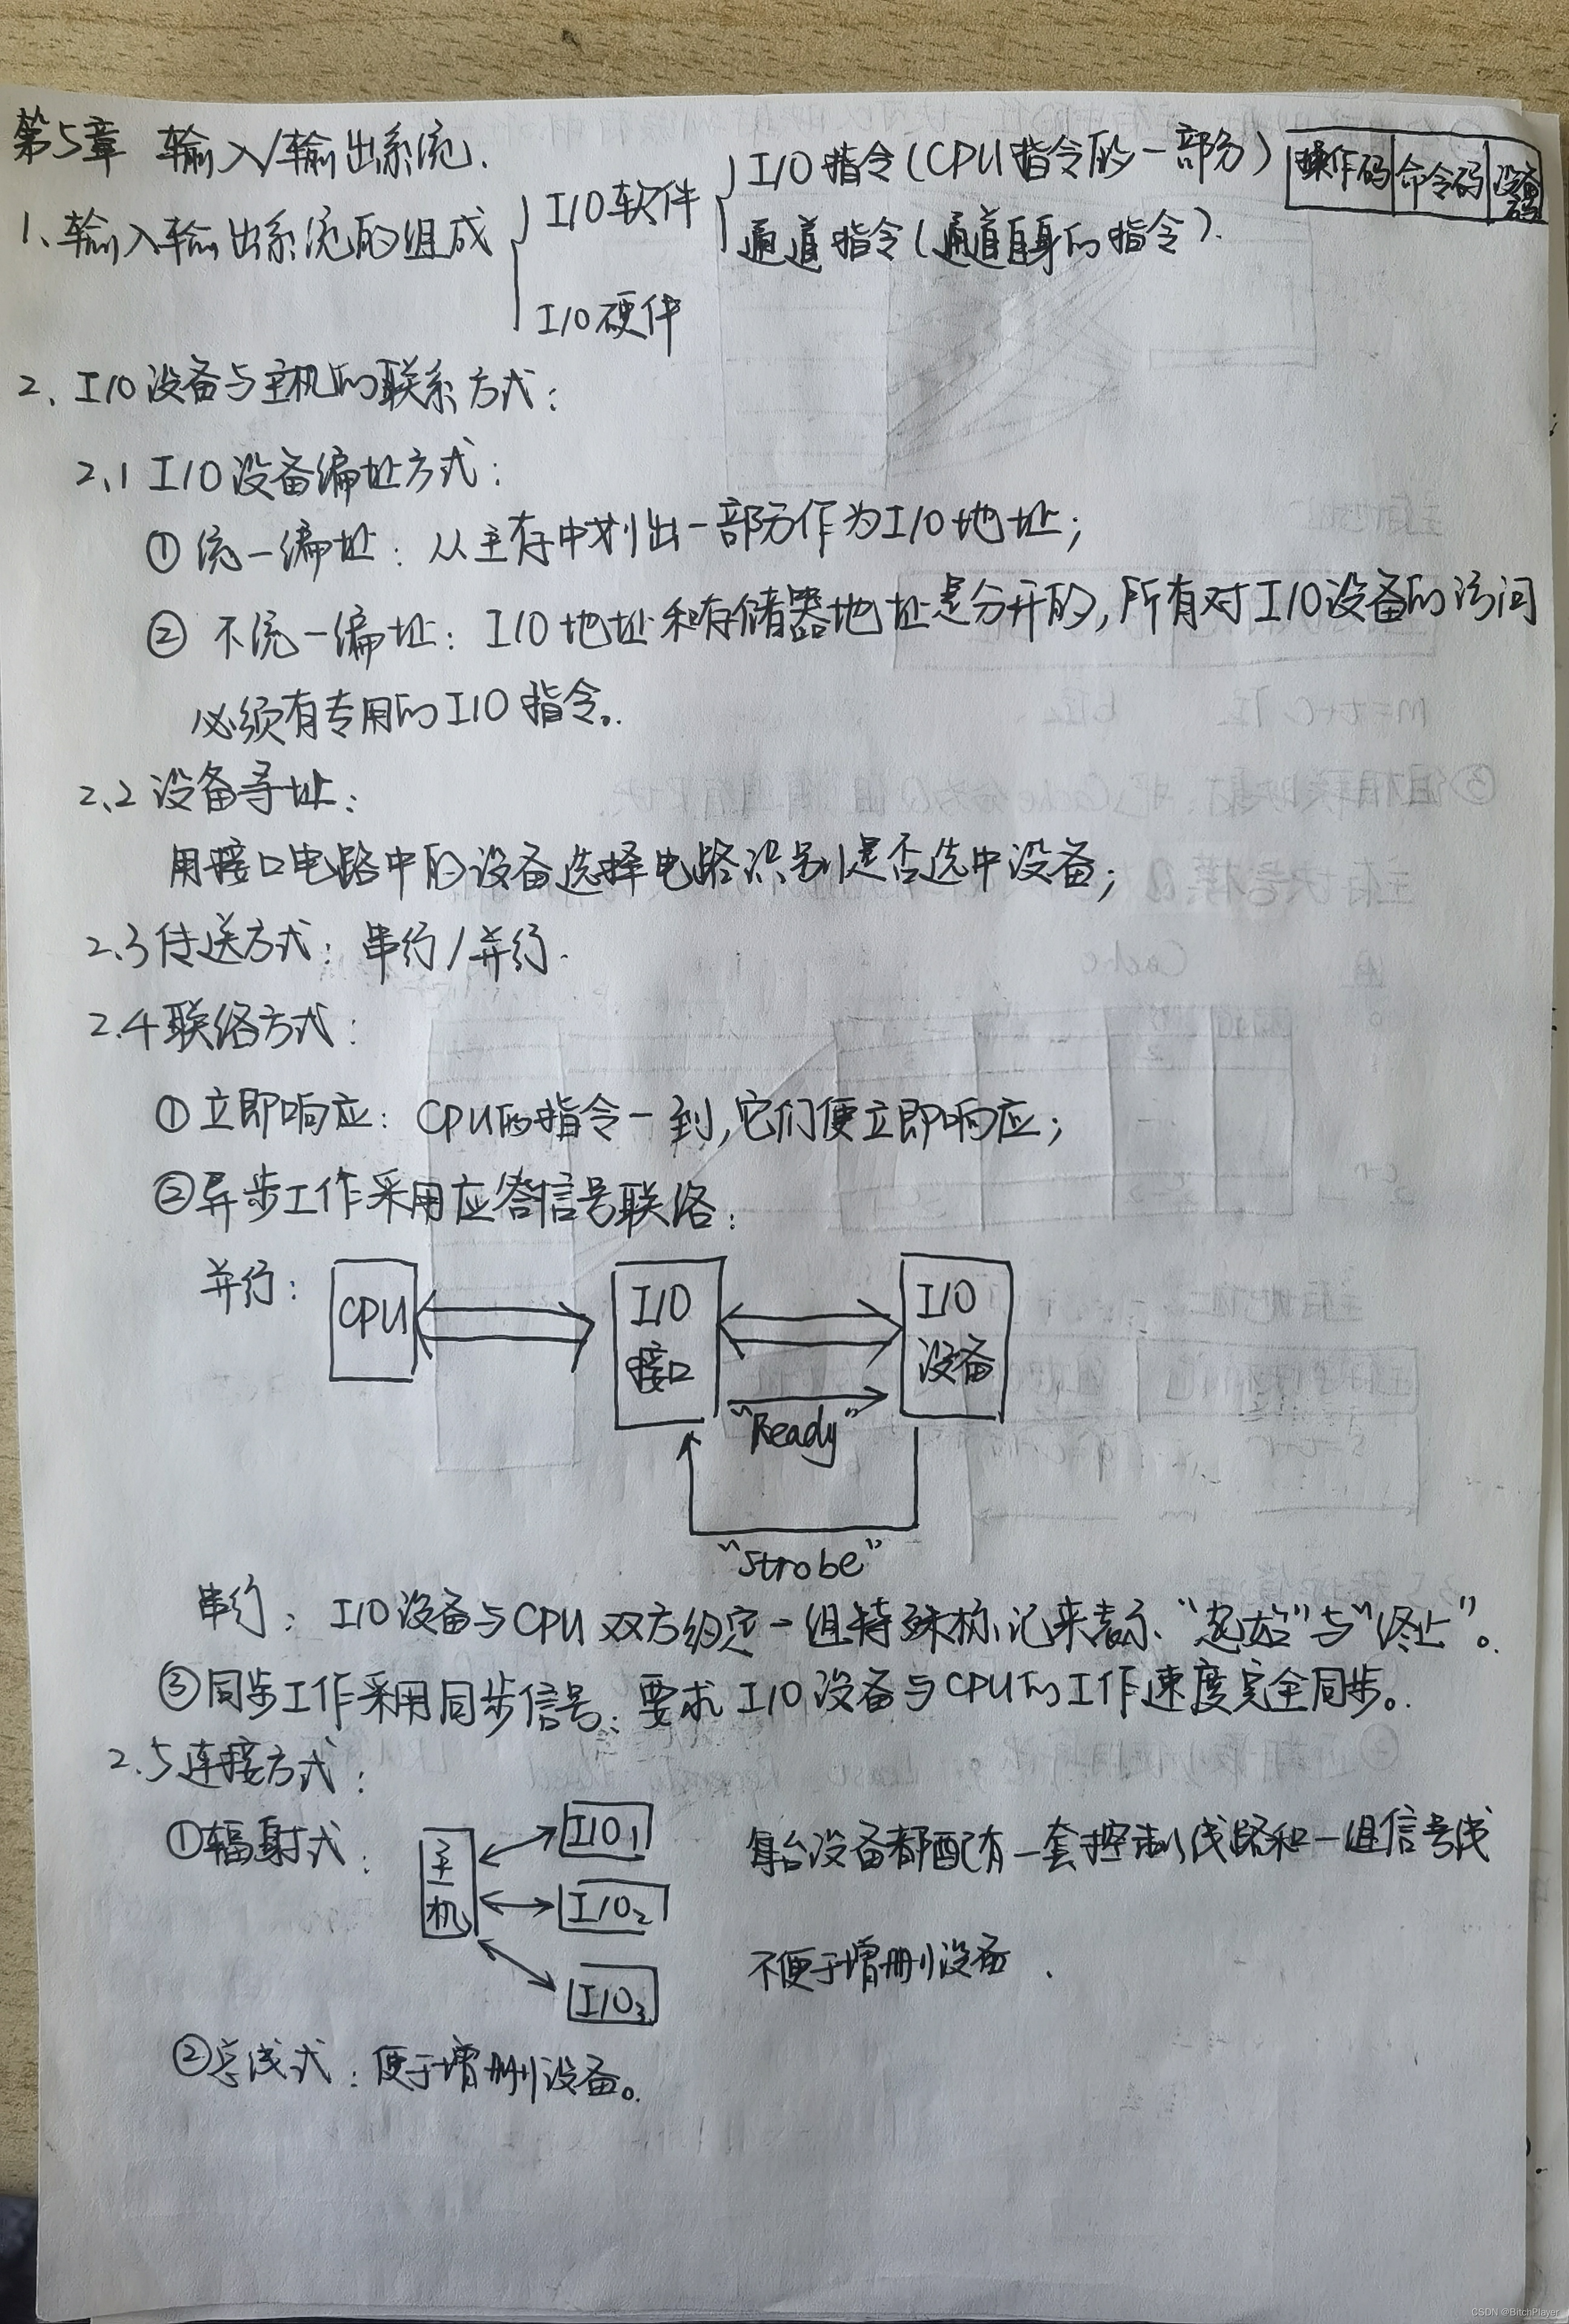 第5章 输入/输出系统.
1、输入输出系统的组成
I/O软件
I/O指令(CPU指令的一部分)
操作码 命令码 设备码
通道指令(通道自身的指令).
I/O硬件
2、I/O设备与主机的联系方式:
2.1 I/O设备编址方式:
① 统一编址: 从主存中划出一部分作为I/O地址;
② 不统一编址: I/O地址和存储器地址是分开的,所有对I/O设备的访问
必须有专用的I/O指令。
2.2 设备寻址:
用接口电路中的设备选择电路识别是否选中设备;
2.3 传送方式: 串行/并行.
2.4 联络方式:
① 立即响应: CPU的指令一到,它们便立即响应;
② 异步工作采用应答信号联络:
并行:
CPU
I/O接口
I/O设备
“Ready”
“Strobe”
串行: I/O设备与CPU双方约定一组特殊标记来表示“起始”与“终止”。
③ 同步工作采用同步信号: 要求I/O设备与CPU的工作速度完全同步。
2.5 连接方式:
① 辐射式:
主机
I/O1
I/O2
I/O3
每台设备都配有一套控制线路和一组信号线
不便于增删设备.
② 总线式: 便于增删设备。
CSDN @BitchPlayer